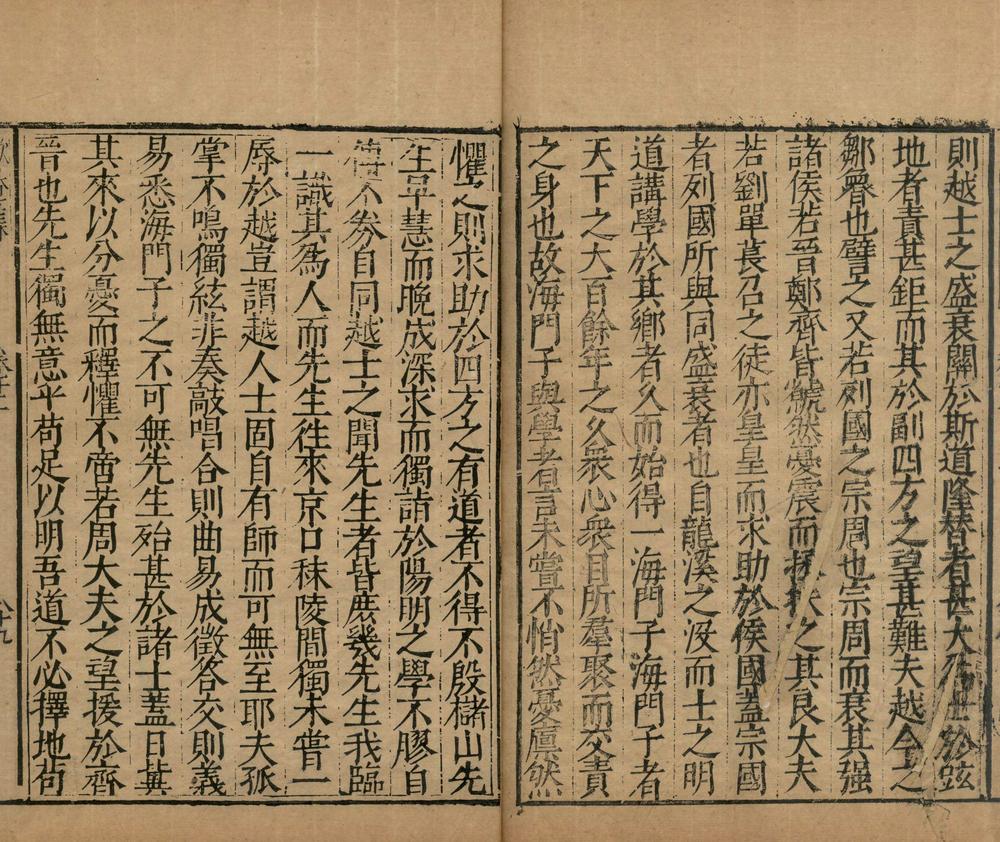 則越士之盛衰關於斯道隆替者甚大存世於茲
地者責甚鉅而其於副四方之望甚難夫越今之
鄒魯也譬之又若列國之宗周也宗周而衰其强
諸侯若晉鄭齊皆兢然憂震而扶之其良大夫
若劉單萇召之徒亦皇皇而求助於侯國蓋宗國
者列國所與同盛衰者也自龍溪之沒而士之明
道講學於其鄉者久而始得一海門子海門子者
天下之大百餘年之久衆心衆目所羣聚而交責
之身也故海門子與學者言未嘗不悄然憂凜然
懼憂之則求助於四方之有道者不得不殷櫧山先
生早慧而晚成深求而獨詣於陽明之學不膠自
漆不劵自同越士之聞先生者皆庶幾先生我臨
一識其爲人而先生徃來京口秣陵間獨未嘗一
辱於越豈謂越人士固自有師而可無至耶夫孤
掌不鳴獨絃非奏敲唱合則曲易成徵咎交則義
易悉海門子之不可無先生殆甚於諸士蓋日冀
其來以分憂而釋懼不啻若周大夫之望援於齊
晉也先生獨無意乎苟足以明吾道不必擇地苟